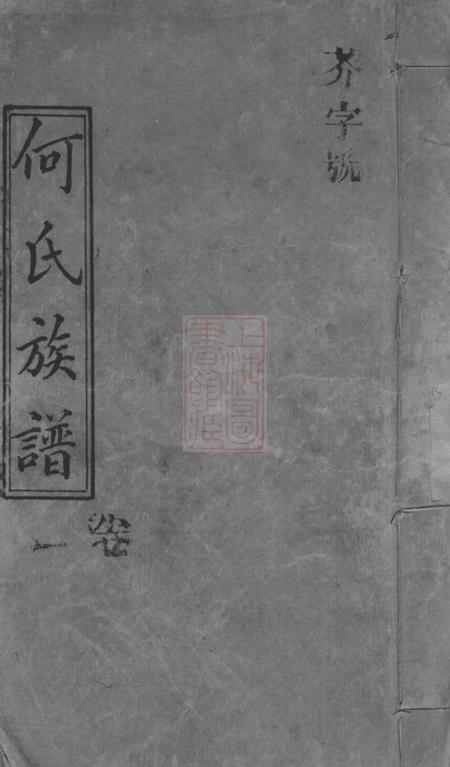 芥字號
何氏族譜
卷一
上海圖書館藏